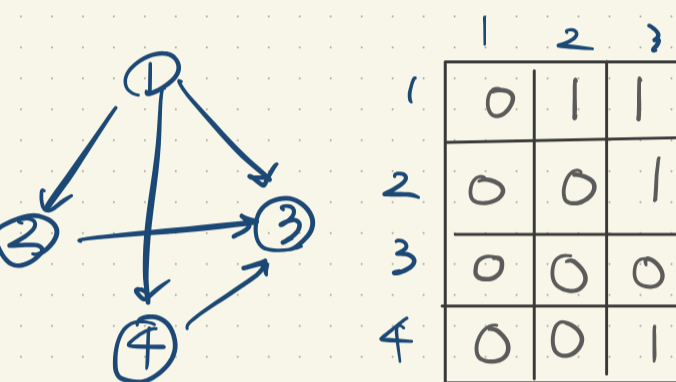 1
2
3
4
1 2 3
1 0 1 1
2 0 0 1
3 0 0 0
4 0 0 1